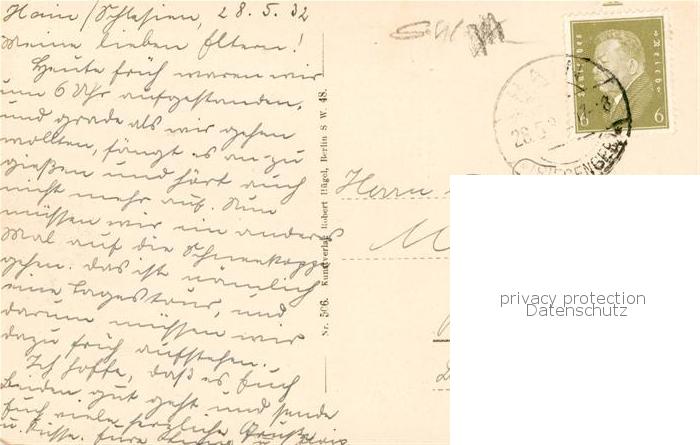 Hain/Schlesien, 28.5.32
Meine lieben Eltern!
Heute früh waren wir
um 6 Uhr aufgestanden,
und grade als wir gehen
wollten, fängt es an zu
gießen und hört auch
nicht mehr auf. Nun
müssen wir ein anderes
Mal auf die Schneekoppe
gehen. Das ist nämlich
eine Tagestour, und
darum müssen wir
dazu früh aufstehen.
Ich hoffe, daß es Euch
beiden gut geht und sende
Euch viele herzliche Grüße
u. Küsse. Eure
Nr. 506. Kunstverlag Robert Hügel, Berlin SW. 48.
Deutsches Reich
6 6
HAIN
28.5.
(RIESENGEB.)
Herrn
M
privacy protection
Datenschutz